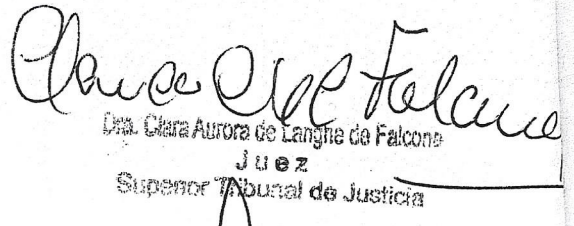 Dra. Clara Aurora de Langhe de Falcone
Juez
Superior Tribunal de Justicia